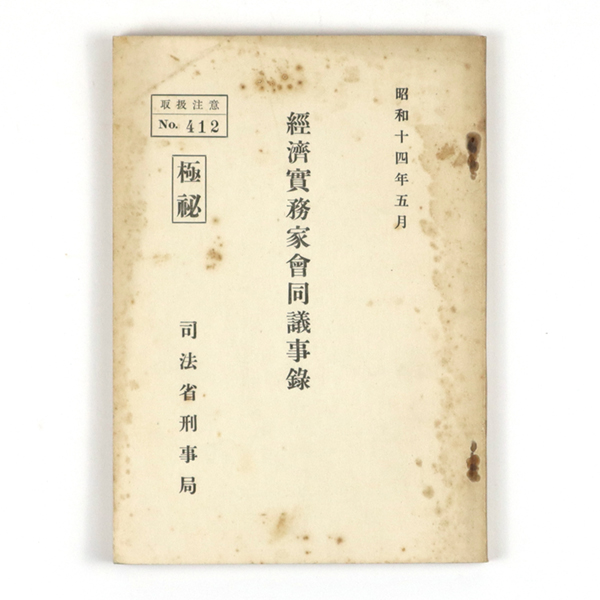 昭和十四年五月
經濟實務家會同議事錄
取扱注意
No. 412
極祕
司法省刑事局